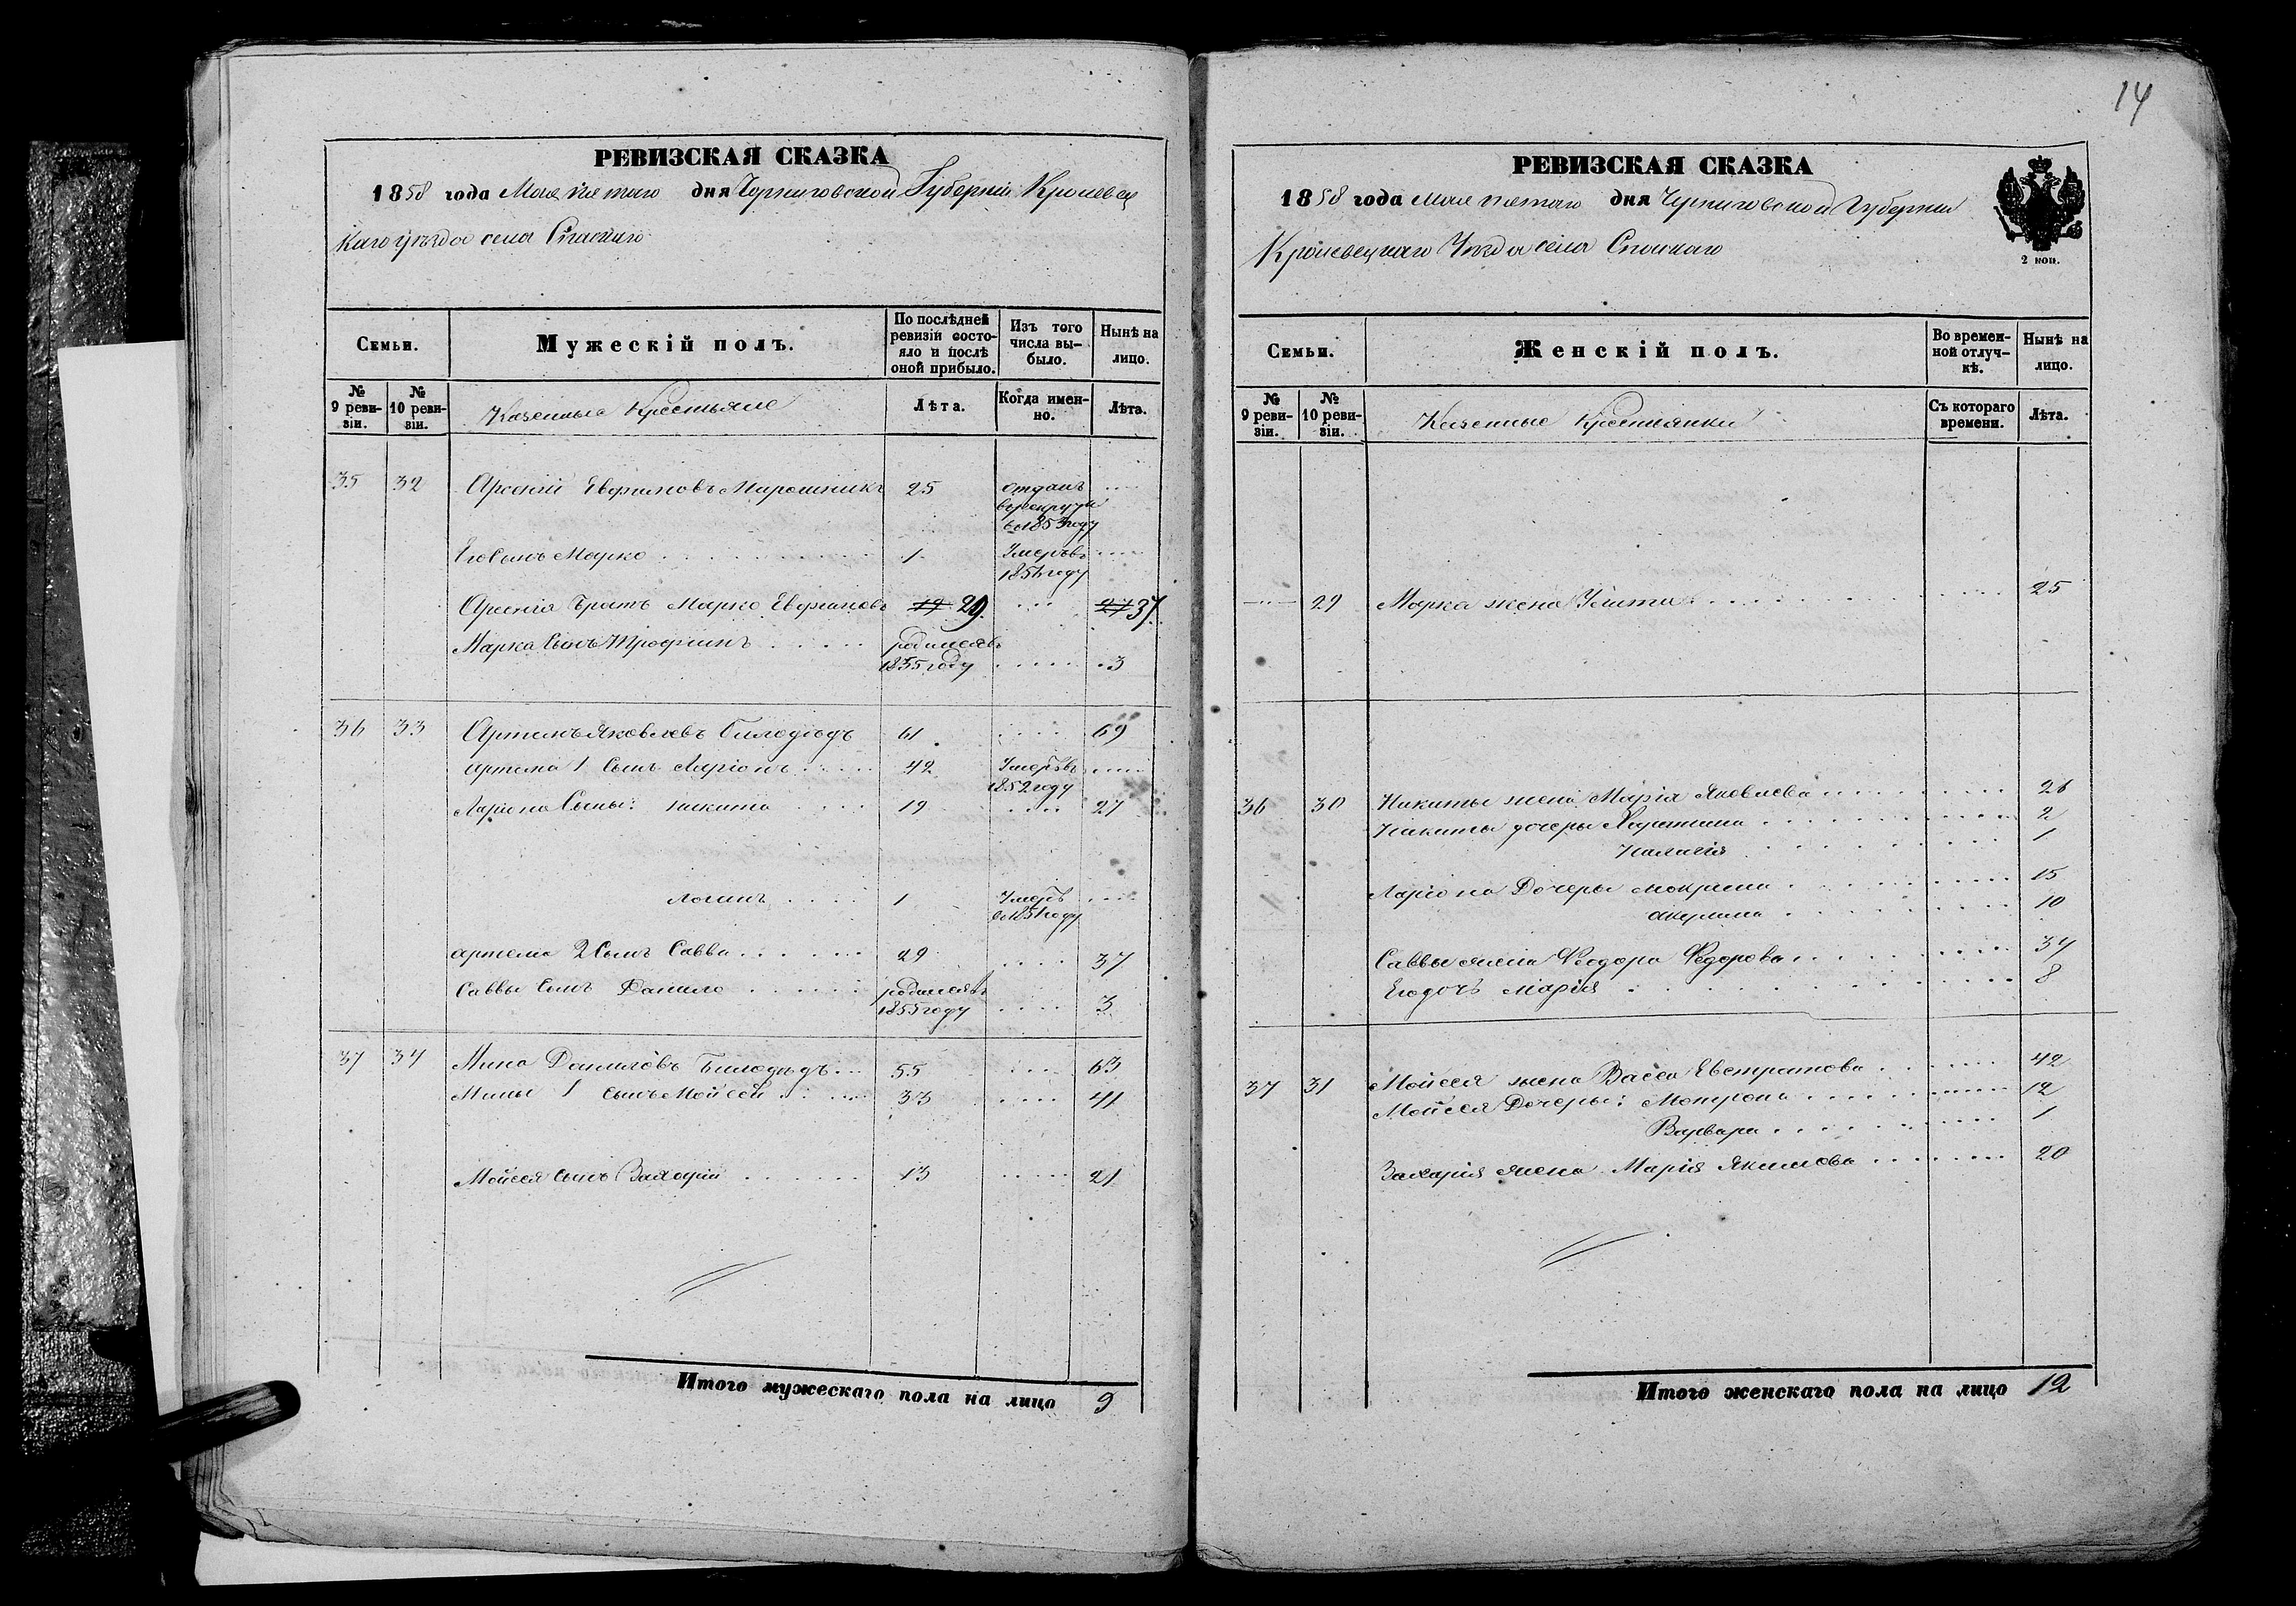 14
РЕВИЗСКАЯ СКАЗКА
1858 года Мая пятаго дня Черниговской Губерніи Кролевец
каго уѣзда села Спаскаго
Семьи.
Мужескій полъ.
По послѣдней ревизіи состояло и послѣ оной прибыло.
Изъ того числа выбыло.
Нынѣ на лицо.
№ 9 ревизіи.
№ 10 ревизіи.
Казенные Крестьяне
Лѣта.
Когда именно.
Лѣта.
35 32 Арсеній Евфимовъ Мирошникъ 25 отданъ
в рекруты
в 1853 году
Его Сынъ Марко 1 Умеръ в
185 году
Арсенія Братъ Марко Евфимовъ 19 29. 27 37.
Марка Сынъ Трофимъ родился въ
1855 году 3
36 33 Артемъ Яковлевъ Билодѣдъ 61 69
Артема 1 Сынъ Ларіонъ 42 Умеръ въ
1852 году
Ларіона Сыны: Никита 19 27
Логинъ 1 Умеръ
в 1851 году
Артема 2 Сынъ Савва 29 37
Саввы Сынъ Данило родился въ
1855 году 3
37 34 Мина Даниловъ Билодѣдъ 55 63
Мины 1 сынъ Мойсей 33 41
Мойсея сынъ Захарій 13 21
Итого мужескаго пола на лицо 9
РЕВИЗСКАЯ СКАЗКА
1858 года Мая пятаго дня Черниговской Губерніи
Кролевецкаго Уѣзда села Спаскаго
2 коп.
Семьи.
Женскій полъ.
Во временной отлучкѣ.
Нынѣ на лицо.
№ 9 ревизіи.
№ 10 ревизіи.
Казенные Крестьянки
Съ котораго времени.
Лѣта.
29 Марка жена Улита 25
36 30 Никиты жена Марія Яковлева 26
Никиты дочеры Харитина 2
Палагія 1
Ларіона Дочеры Мокрина 15
Акулина 10
Саввы жена Феодора Федорова 34
Его дочь Марія 8
37 31 Мойсея жена Васса Евстратова 42
Мойсея Дочеры: Мотрона 12
Варвара 1
Захарія жена Марія Якимова 20
Итого женскаго пола на лицо 12